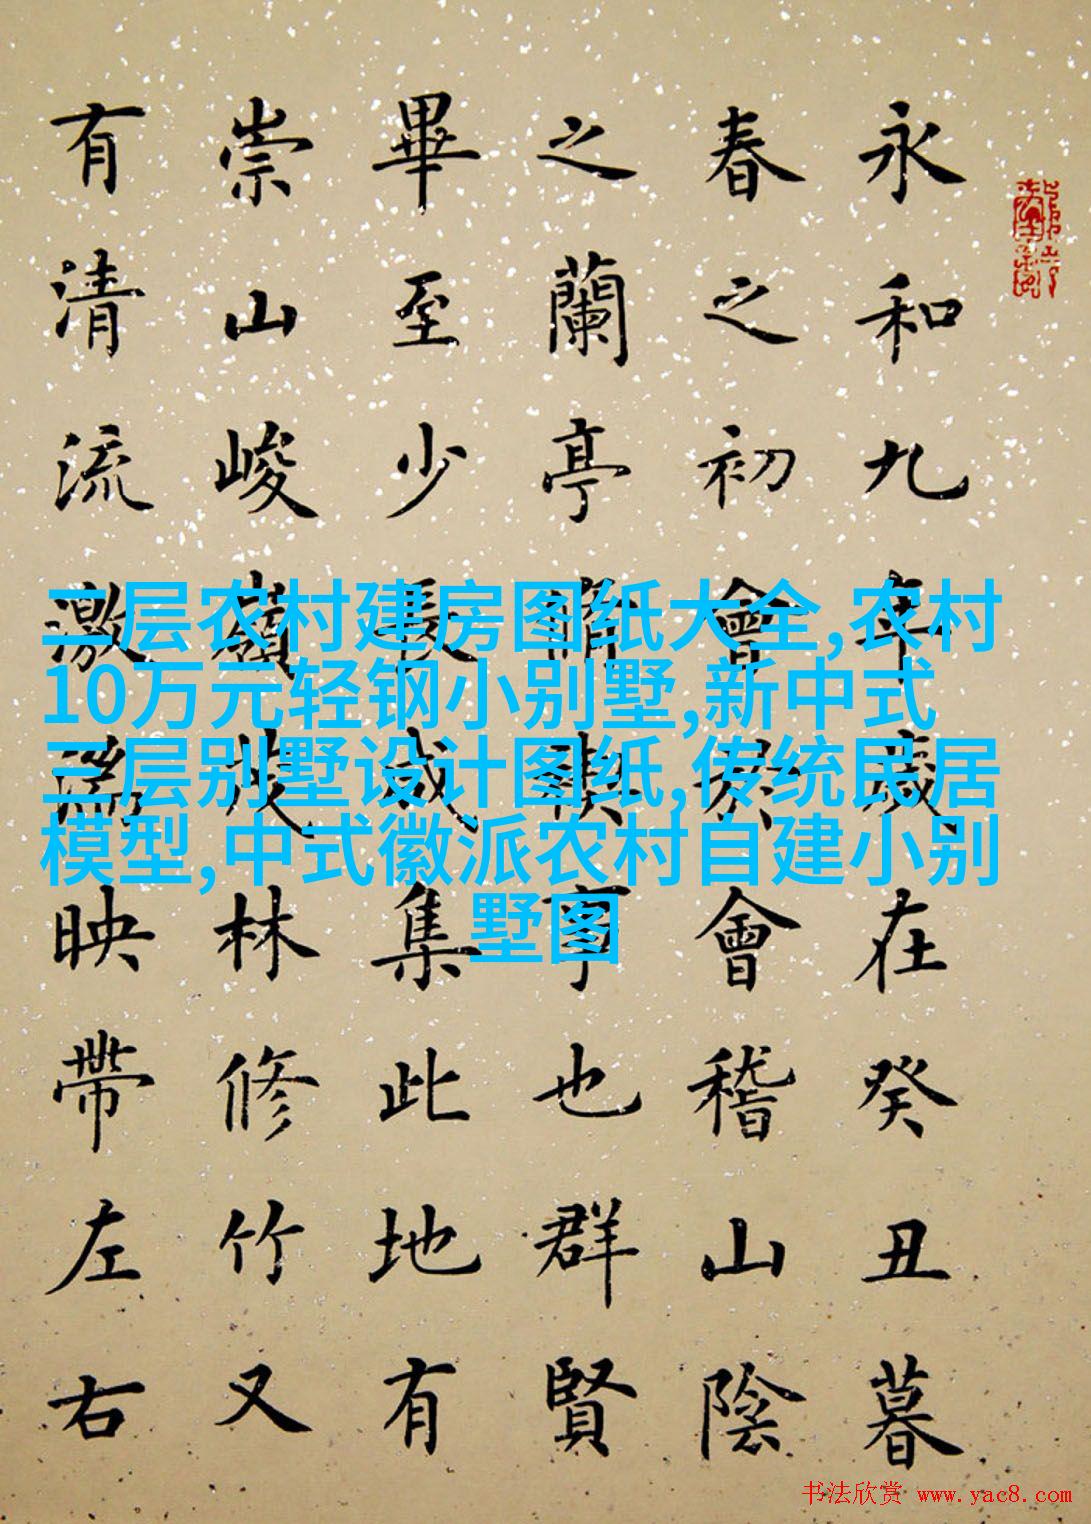 永和九年歲在癸丑暮
春之初會於會稽山陰
之蘭亭脩禊事也群賢
畢至少長咸集此地有
崇山峻嶺茂林修竹又
有清流激湍映帶左右
二层农村建房图纸大全,农村
10万元轻钢小别墅,新中式
三层别墅设计图纸,传统民居
模型,中式徽派农村自建小别
墅图
书法欣赏 www.yac8.com